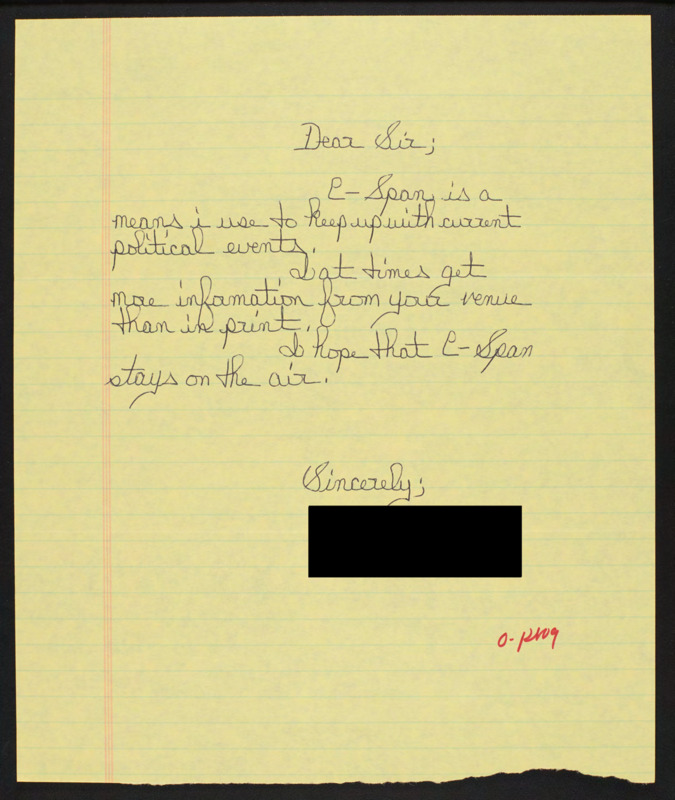 Dear Sir;
C-Span is a
means i use to keep up with current
political events.
I at times get
more information from your venue
than in print.
I hope that C-Span
stays on the air.
Sincerely;